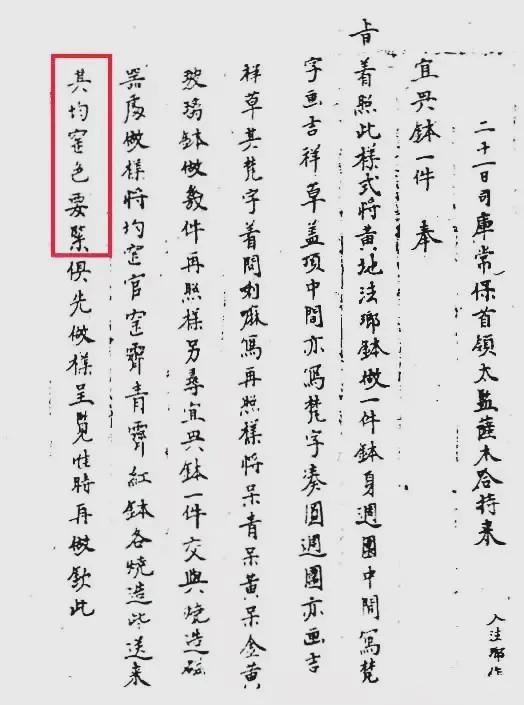 二十一日司庫常保首領太監薩木哈持來
入法瑯作
宜興鉢一件 奉
旨着照此樣式將黃地法瑯鉢做一件鉢身週圍中間寫梵
字画吉祥草盖頂中間亦寫梵字湊圓週圍亦画吉
祥草其梵字着問喇嘛寫再照樣將呆青呆黃呆金黃
玻璃鉢做數件再照樣另尋宜興鉢一件交與燒造磁
器處做樣將均窰官窰霽青霽紅鉢各燒造些送來
其均窰色要緊俱先做樣呈覽准時再做欽此